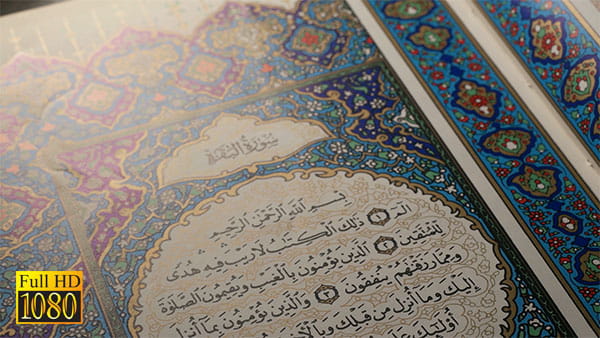 سُورَةُ البَقَرَة
بِسْمِ اللَّهِ الرَّحْمَنِ الرَّحِيمِ
الٓمٓ ۝١ ذَٰلِكَ الْكِتَابُ لَا رَيْبَ فِيهِ هُدًى
لِلْمُتَّقِينَ ۝٢ الَّذِينَ يُؤْمِنُونَ بِالْغَيْبِ وَيُقِيمُونَ الصَّلَاةَ
وَمِمَّا رَزَقْنَاهُمْ يُنْفِقُونَ ۝٣ وَالَّذِينَ يُؤْمِنُونَ بِمَا أُنْزِلَ
إِلَيْكَ وَمَا أُنْزِلَ مِنْ قَبْلِكَ وَبِالْآخِرَةِ
أُولَٰئِكَ عَلَىٰ
Full HD
1080